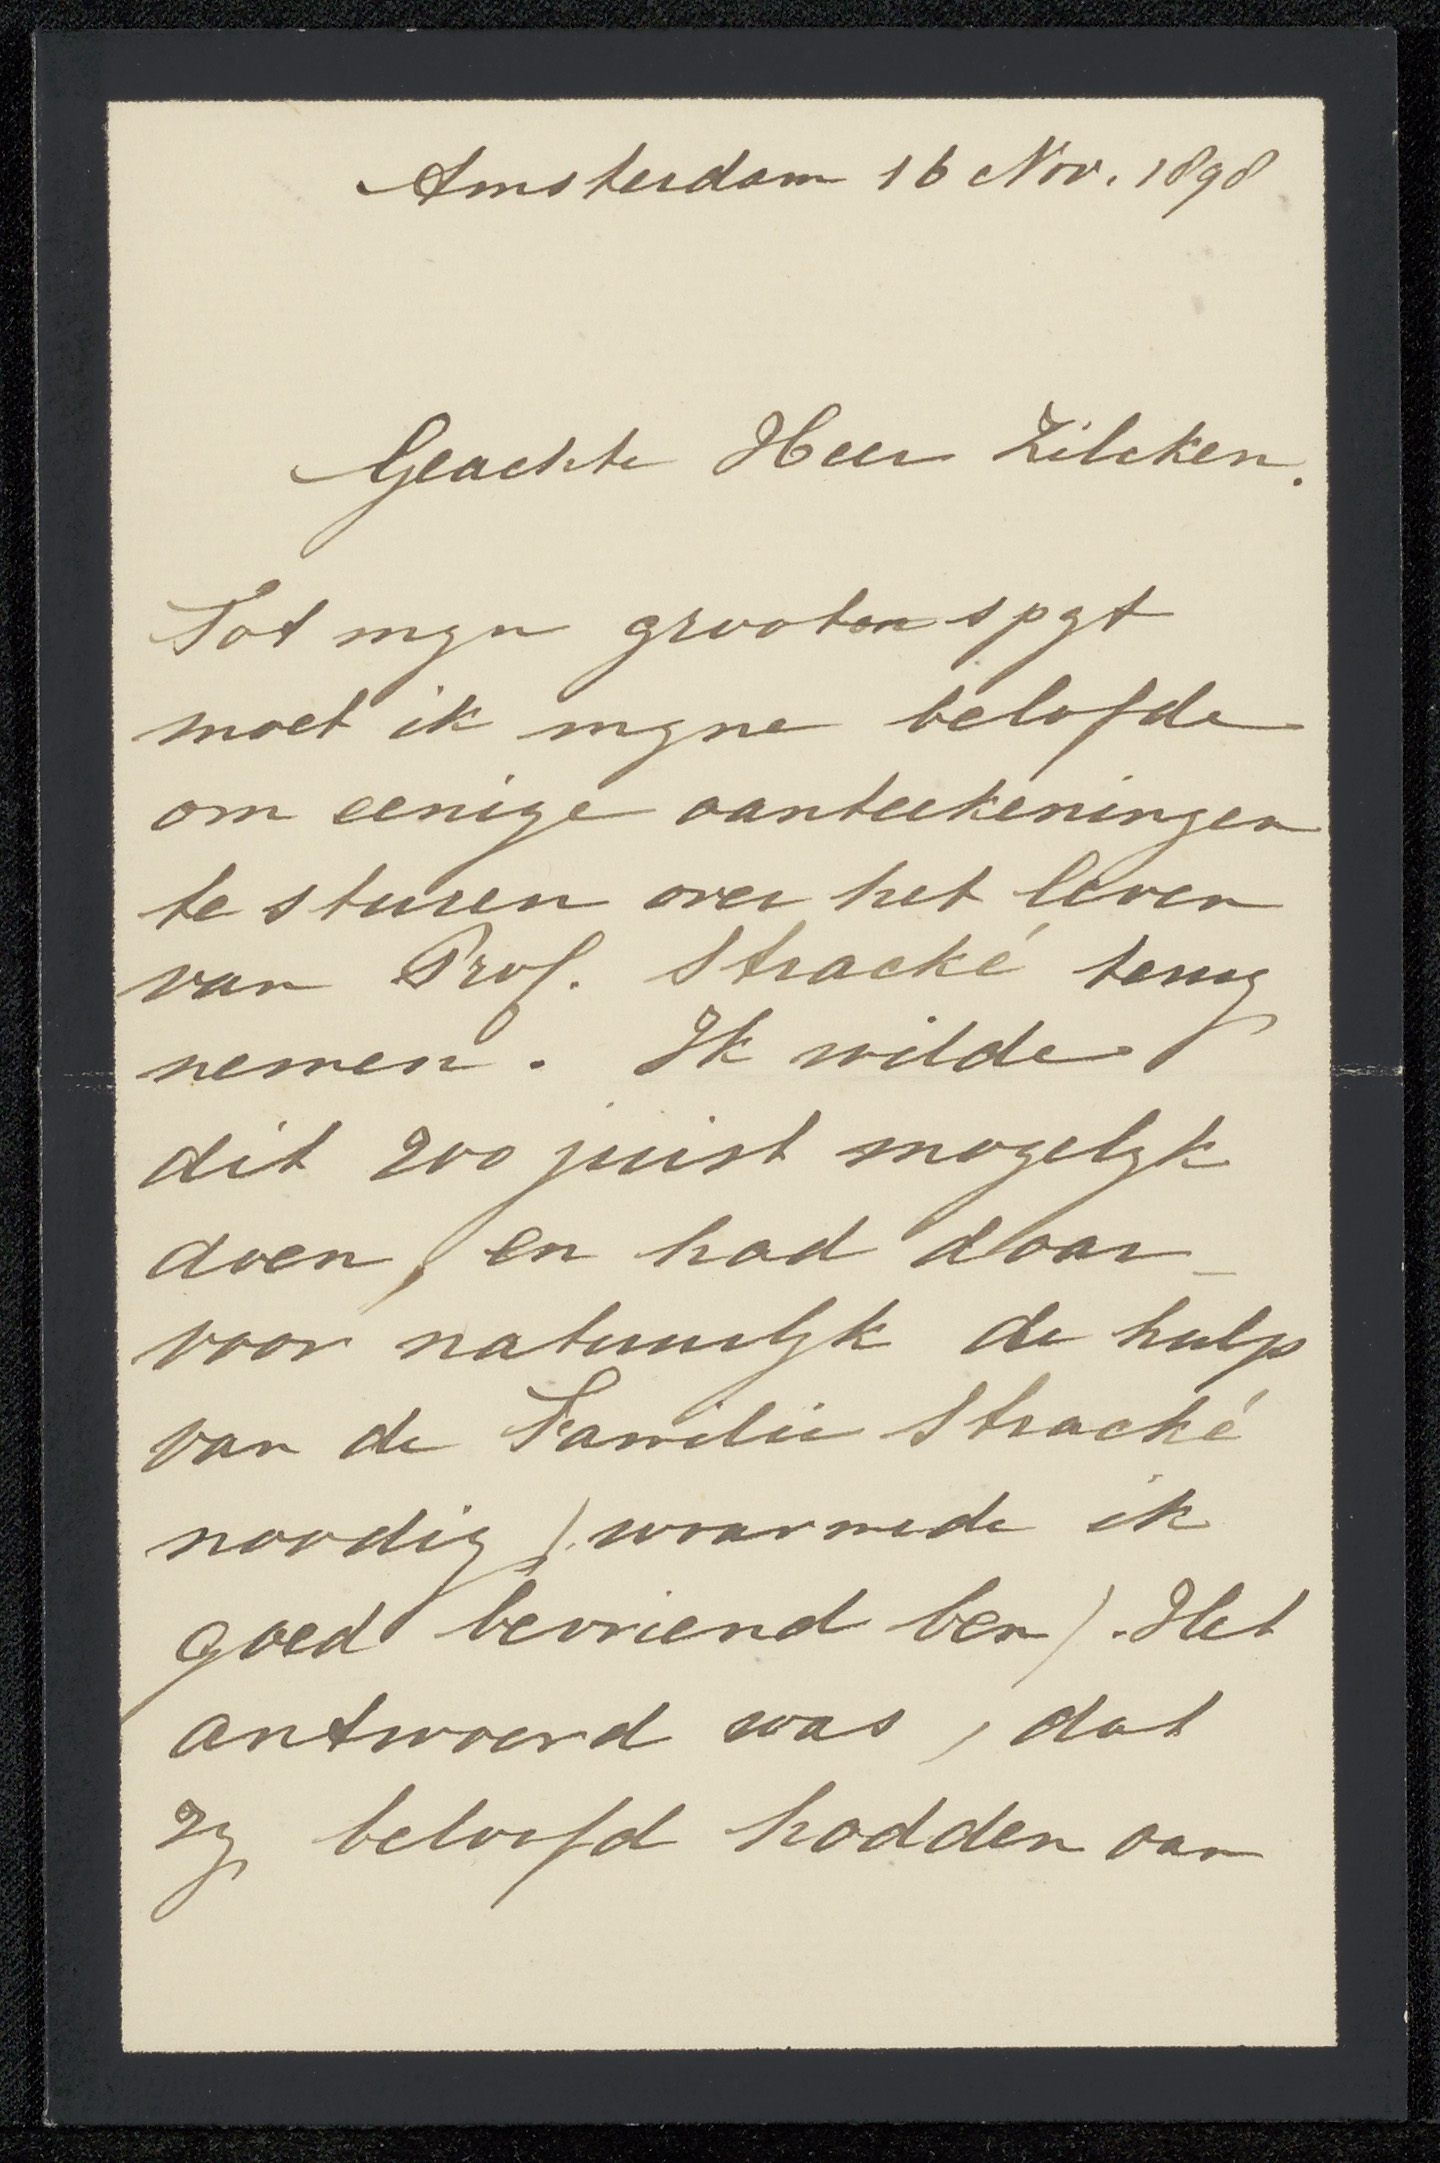 Amsterdam 16 Nov. 1898
Geachte Heer Zilcken.
Tot mijn grooten spijt
moet ik mijne belofde
om eenige aanteekeningen
te sturen over het leven
van Prof. Stracké terug
nemen. Ik wilde
dit zoo juist mogelijk
doen, en had daar-
voor natuurlijk de hulp
van de Familie Stracké
noodig (waarmede ik
goed bevriend ben). Het
antwoord was, dat
zij beloofd hadden aan